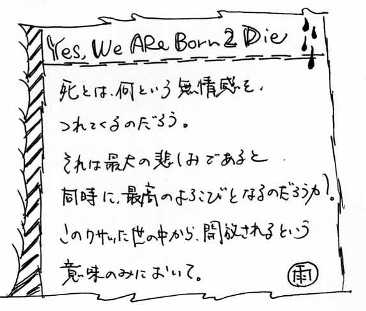 Yes, We ARe Born 2 Die
死とは、何という無情感を、
つれてくるのだろう。
それは最大の悲しみであると
同時に、最高のよろこびとなるのだろうか?。
このクサッた世の中から、開放されるという
意味のみにおいて。
雨